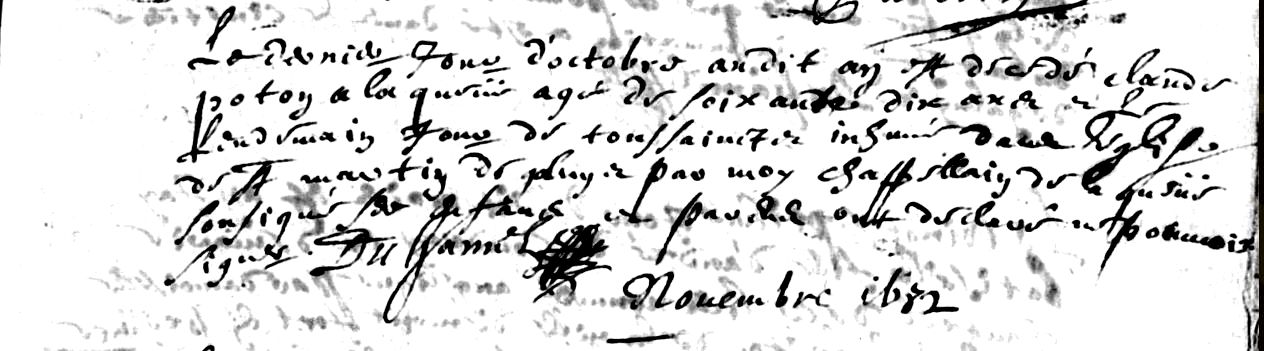 Le dernier Jour d'octobre audit an est decedé claude
poton a la queüe agé de soixante dix ans et le
lendemain Jour de toussainctz inhumé dans l'Eglise
de St martin de par moy chappellain de la queüe
sousigné ses enfans et parens ont declaré ne pouvoir
signer
Novembre 1672